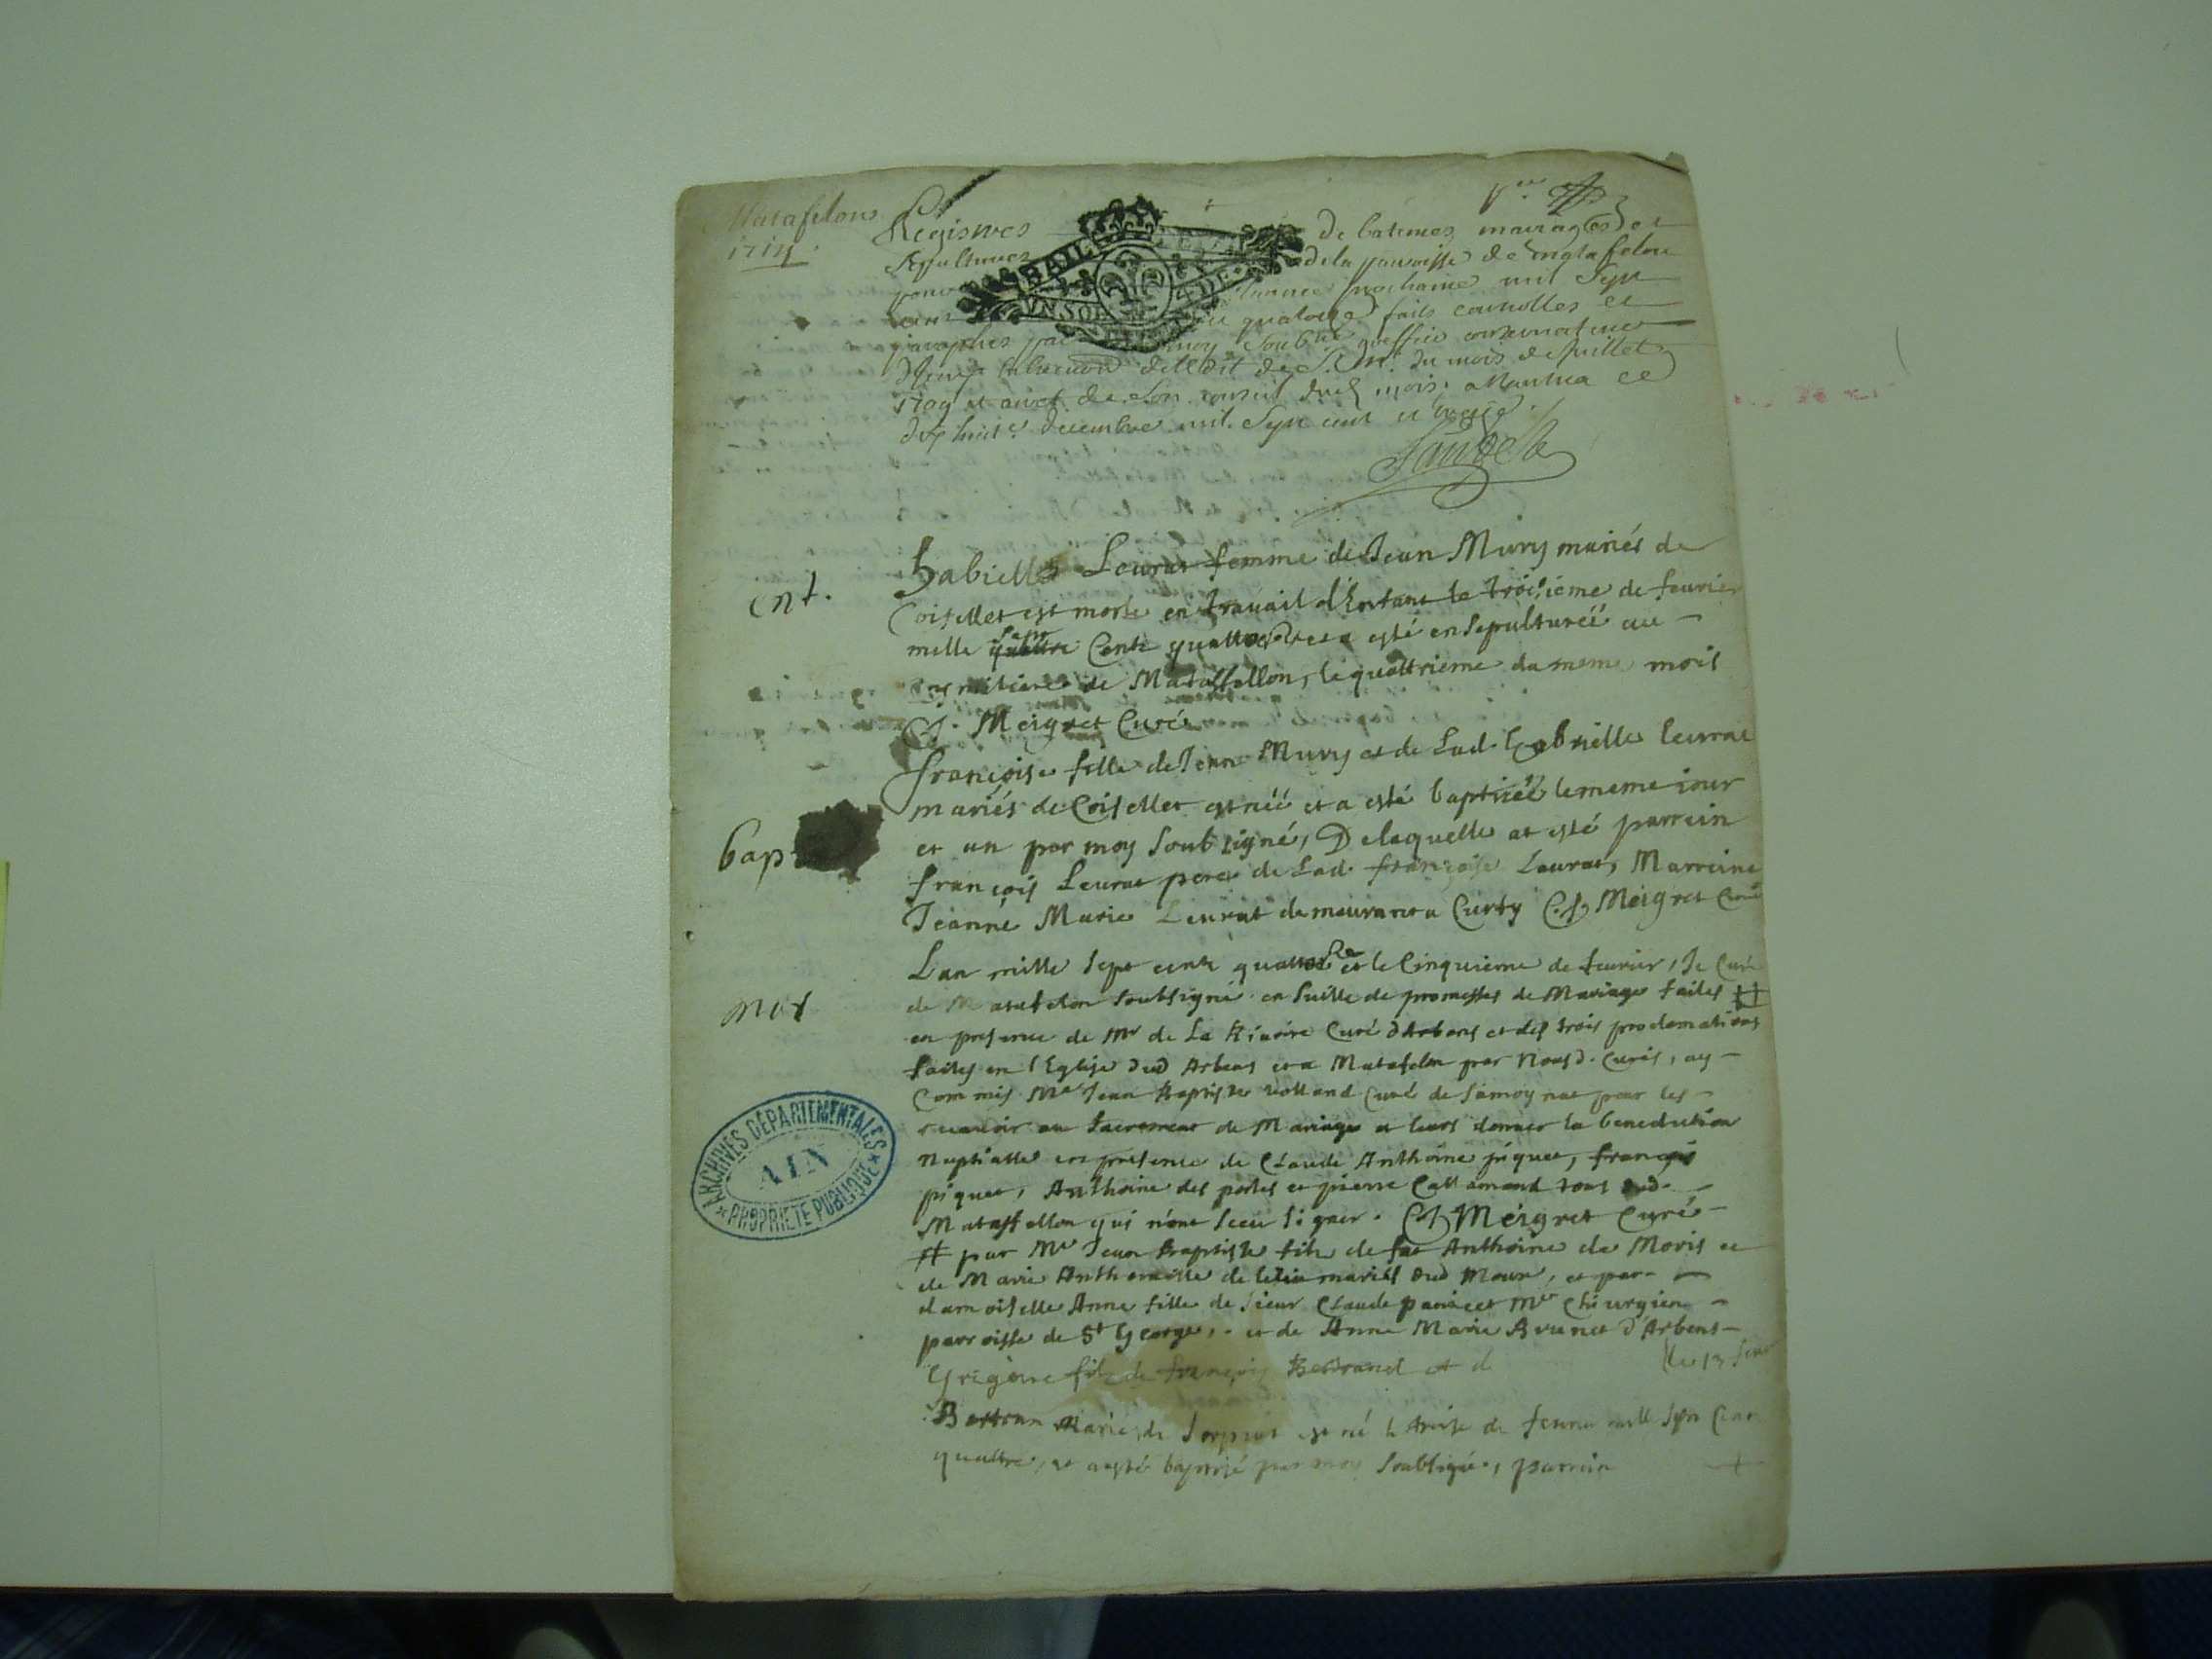 Matafelons
1714
Registres de batemes mariages et
sepultures de la parroisse de matafelon
pour l'année prochaine mil sept
cent quatorze faits cottés et
paraphés par moy soub.né greffier conservateur
de l'edit de S. M. du mois de Juillet
1709 et arret de son conseil dud. mois. a Nantua ce
dix huit.e decembre mil. sept cent et treize.
BAIL
UN SOL 4 DE.
ent.
Gabrielle Leurat femme de Jean Mury mariés de
Coisellet est morte en travail d'Enfant le troisieme de feurier
mille quattre sept Cents quattorze et a esté ensepulturéé au
Cymitiere de Mataffellon, le quattrieme du meme mois
Cl. Meigret Curé
bap
françoise fille de Jean Mury et de Lad. Gabrielle leurat
mariés de Coisellet est néé et a esté baptiséé le meme iour
et an par moy soub signé, De laquelle at esté parrein
françois Leurat pere de Lad. françoise Leurat, Marreine
Jeanne Marie Leurat demeurant a Curty Cl. Meigret Curé
mar
L an mille sept cents quattorze et le Cinquieme de feurier, Je Curé
de Matafelon soubsigné en suitte de promesses de Mariage faites #
en presence de Mr de La Riuoire Curé d'Arbens et des trois proclamations
faites en l'Eglise dud Arbens et a Matafelon par Nousd. Curés, ay
Commis Mre Jean Baptiste volland Curé de Samognat pour les
receuoir au Sacrement de Mariage et leurs donner la benediction
Nuptialle en presence de Claude Anthoine piquet, françois
piquet, Anthoine des portes et pierre Callamand tous dud.
Mataffellon qui n'ont sceu signer. Cl Meigret Curé
# par Mre Jean Baptiste fils de feu Anthoine de Moris et
de Marie Anthoinette de mariés dud et par
damoiselle Anne fille de sieur Claude panisset Mre Chirurgien
parroisse de St George, et de Anne Marie Brunet d'Arbens
Grégoire fils de françois Bertrand et d
Bertran Mariés de est né le treise de feurier mille sept Cent
quattre, et a esté baptisé par moy Soubsigné, parrein
ARCHIVES DÉPARTEMENTALES
AIN
PROPRIÉTÉ PUBLIQUE